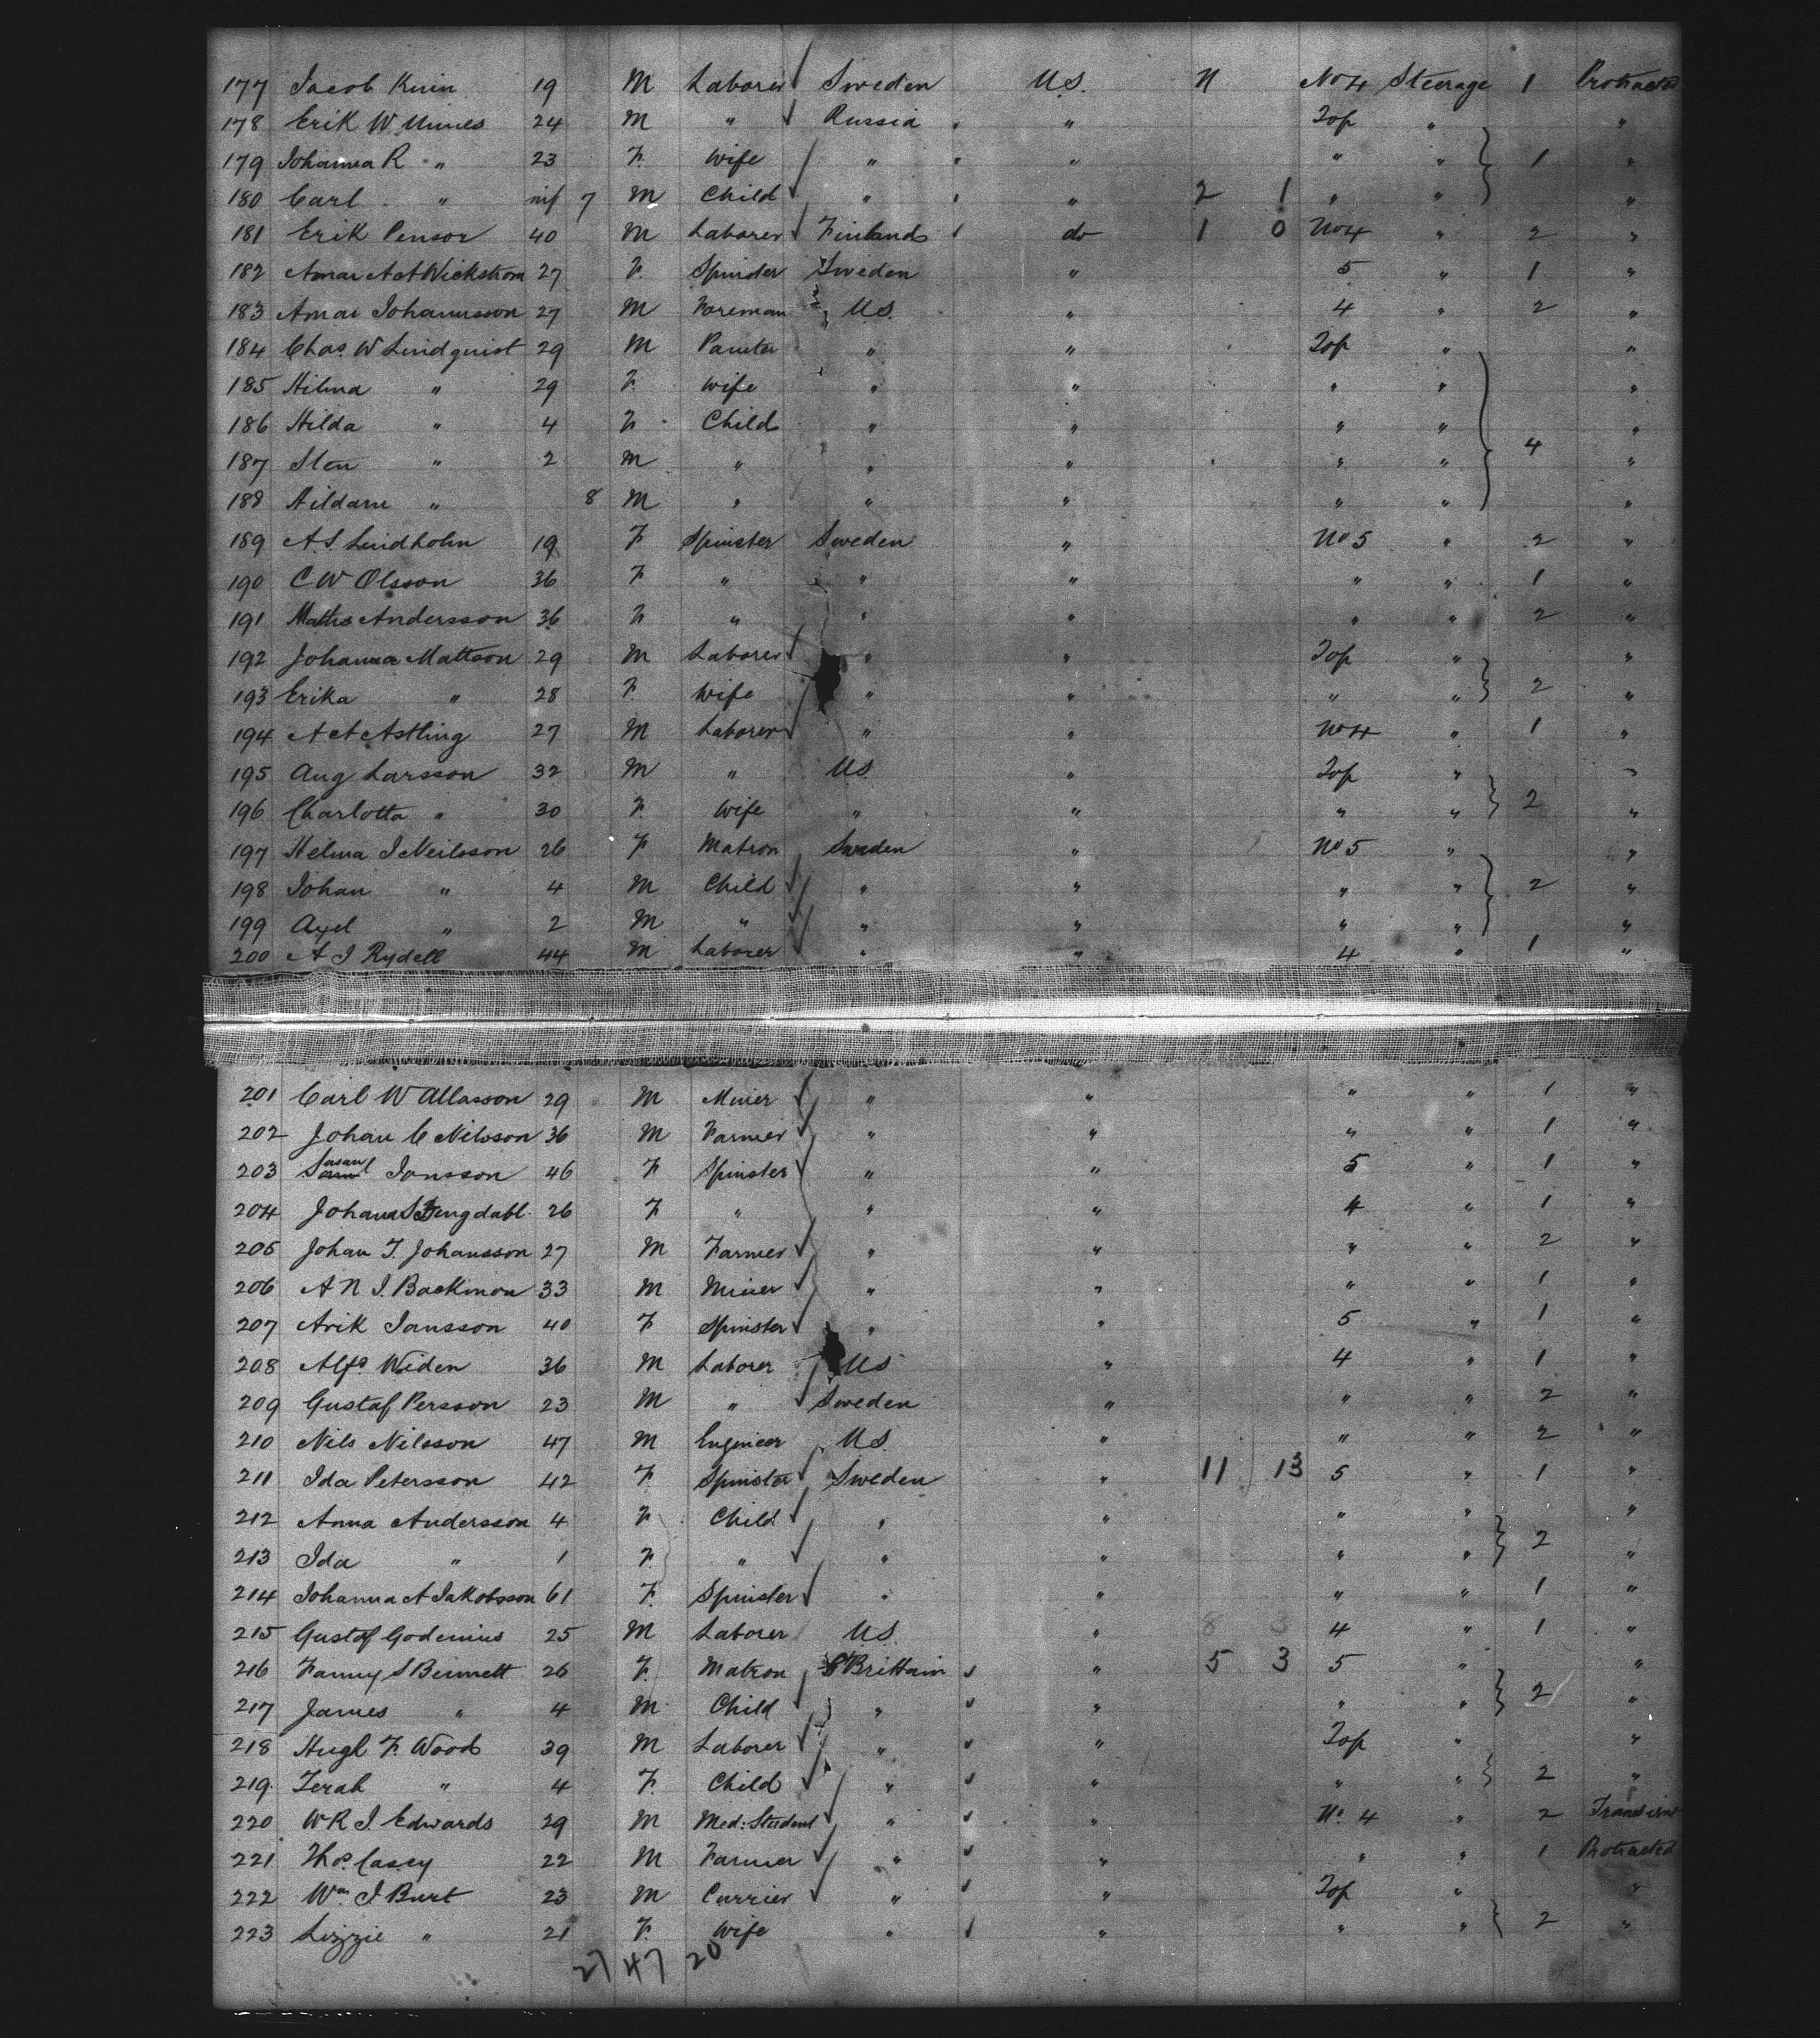 177 Jacob Kuin 19 M Laborer Sweden U.S. N No 4 Steerage 1 Protracted
178 Erik W Unnes 24 M " Russia " Top " "
179 Johanna R " 23 F. Wife " " " " 1 "
180 Carl " inf 7 M Child " " 2 1 " " "
181 Erik Pensor 40 M Laborer Finland do 1 0 No 4 " 2 "
182 A A Wickstrom 27 F. Spinster Sweden " 5 " 1 "
183 Johannsson 27 M Foreman U.S. " 4 " 2 "
184 Chas W Lindquist 29 M Painter " " Top " "
185 Hilma " 29 F. Wife " " " " "
186 Hilda " 4 F. Child " " " " "
187 Sten " 2 M " " " " " 4 "
188 Aildam " 8 M " " " " " "
189 A.S. Lindholm 19 F Spinster Sweden " No 5 " 2 "
190 C W Olsson 36 F " " " " " 1 "
191 Andersson 36 F " " " " " 2 "
192 Johanna Mattson 29 M Laborer " " Top " "
193 Erika " 28 F. Wife " " " " 2 "
194 A A Astling 27 M Laborer " " No 4 " 1 "
195 Aug Larsson 32 M " U.S. " Top " "
196 Charlotta " 30 F. Wife " " " " 2 "
197 Helma I Neilsson 26 F Matron Sweden " No 5 " "
198 Johan " 4 M Child " " " " 2 "
199 Axel " 2 M " " " " " "
200 A J Rydell 44 M Laborer " " 4 " 1 "
201 Carl W Allasson 29 M Miner " " " " 1 "
202 Johan C Nilsson 36 M Farmer " " " " 1 "
203 Susan Jansson 46 F Spinster " " 5 " 1 "
204 Johana S Bengdahl 26 F " " " 4 " 1 "
205 Johan T. Johansson 27 M Farmer " " " " 2 "
206 A N J. Backmon 33 M Miner " " " " 1 "
207 Arik Jansson 40 F Spinster " " 5 " 1 "
208 Alfd Widen 36 M Laborer US " 4 " 1 "
209 Gustaf Persson 23 M " Sweden " " " 2 "
210 Nils Nilsson 47 M Engineer U.S. " " " 2 "
211 Ida Petersson 42 F Spinster Sweden " 11 13 5 " 1 "
212 Anna Andersson 4 F Child " " " " "
213 Ida " 1 F. " " " " " 2 "
214 Johanna A Jakobsson 61 F. Spinster " " " " 1 "
215 Gustaf Godenius 25 M Laborer U.S. " 8 3 4 " 1 "
216 Fanny S Bennett 26 F. Matron Gt Brittain " 5 3 5 " "
217 James " 4 M Child " " " " 2 "
218 Hugh F. Wood 39 M Laborer " " Top " "
219 Zerah " 4 F. Child " " " " 2 "
220 W R J Edwards 29 M Med: Student " " No 4 " 2 Transient
221 Thos Casey 22 M Farmer " " " " 1 Protracted
222 Wm J Burt 23 M Currier " " Top " "
223 Lizzie " 21 F. Wife " " " " 2 "
27 47 20